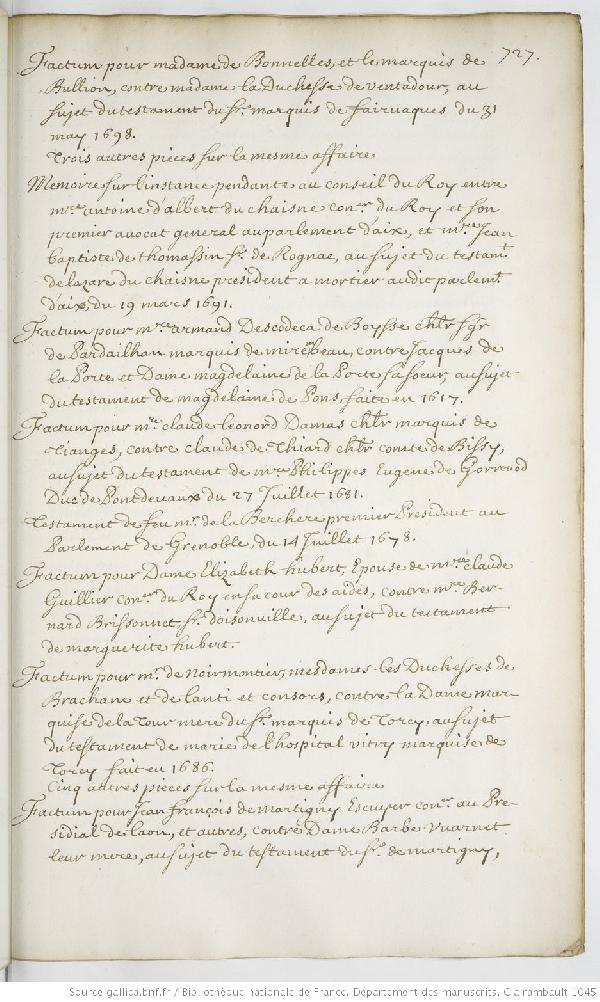 727.
Factum pour madame de Bonnelles, et le marquis de
Bullion, contre madame la Duchesse de ventadour, au
sujet du testament du Sr. marquis de fairuaques du 31
may 1698.
Trois autres pieces sur la mesme affaire
Memoire sur l'instance pendante au conseil du Roy entre
mre. antoine d'albert du chaisne coner. du Roy et son
premier avocat general au parlement d'aix, et mre. Jean
baptiste de thomassin Sr. de Rognac, au sujet du testamt.
de lazare du chaisne president a mortier audit parlemt.
d'aix, du 19 mars 1691.
Factum pour mre. armand Descodeca de Boysse chlr sgr
de Pardailhan marquis de mirembeau, contre Jacques de
la Porte et Dame magdelaine de la Porte sa soeur, au sujet
du testament de magdelaine de Pons, faite en 1617.
Factum pour mre. claude leonord Damas chlr marquis de
Tianges, contre claude de Thiard chlr comte de Bissy,
au sujet du testament de mre. Philippes Eugene de Gorrevod
Duc de Pontdevaux du 27 Juillet 1681.
Testament de feu mr. de la Berchere premier President au
Parlement de Grenoble, du 14 Juillet 1678.
Factum pour Dame Elizabeth hubert, Epouse de mre. claude
Guillier coner. du Roy en sa cour des aides, contre mre. Ber-
nard Brissonnet sr. d'oisonville, au sujet du testament
de marguerite hubert.
Factum pour mr. de Noirmontier, mesdames les Duchesses de
Brachane et de lanti et consors, contre la Dame mar-
quise de la Tour mere du Sr. marquis de Torcy, au sujet
du testament de marie de l'hospital vitry marquise de
Torcy fait en 1686.
Cinq autres pieces sur la mesme affaire
Factum pour Jean françois de martigny Escuyer coner. au Pre-
sidial de laon, et autres, contre Dame Barbe vuarnet
leur mere, au sujet du testament du Sr. de martigny,
Source gallica.bnf.fr / Bibliothèque nationale de France. Département des manuscrits. Clairambault 1045